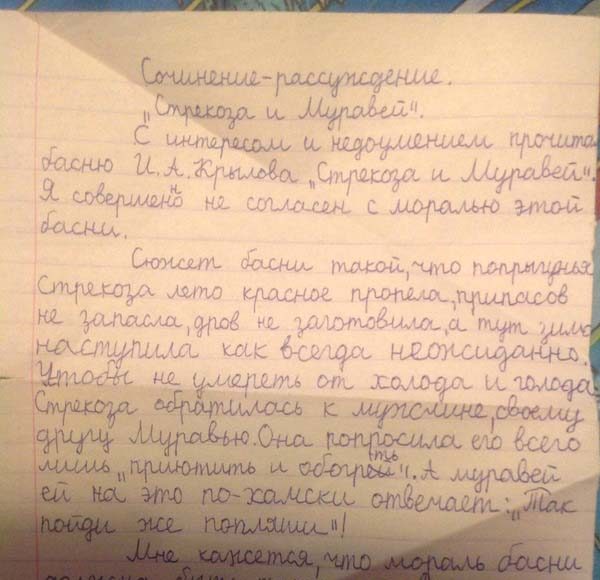 Сочинение-рассуждение.
„Стрекоза и Муравей".
С интересом и недоумением прочита
басню И.А.Крылова „Стрекоза и Муравей".
Я совершенно не согласен с моралью этой
басни.
Сюжет басни такой, что попрыгунья
Стрекоза лето красное пропела, припасов
не запасла, дров не заготовила, а тут зима
наступила как всегда неожиданно.
Чтобы не умереть от холода и голода
Стрекоза обратилась к мужчине, своему
другу Муравью. Она попросила его всего
лишь „приютить и обогреть". А муравей
ей на это по-хамски отвечает: „Так
пойди же попляши"!
Мне кажется, что мораль басни